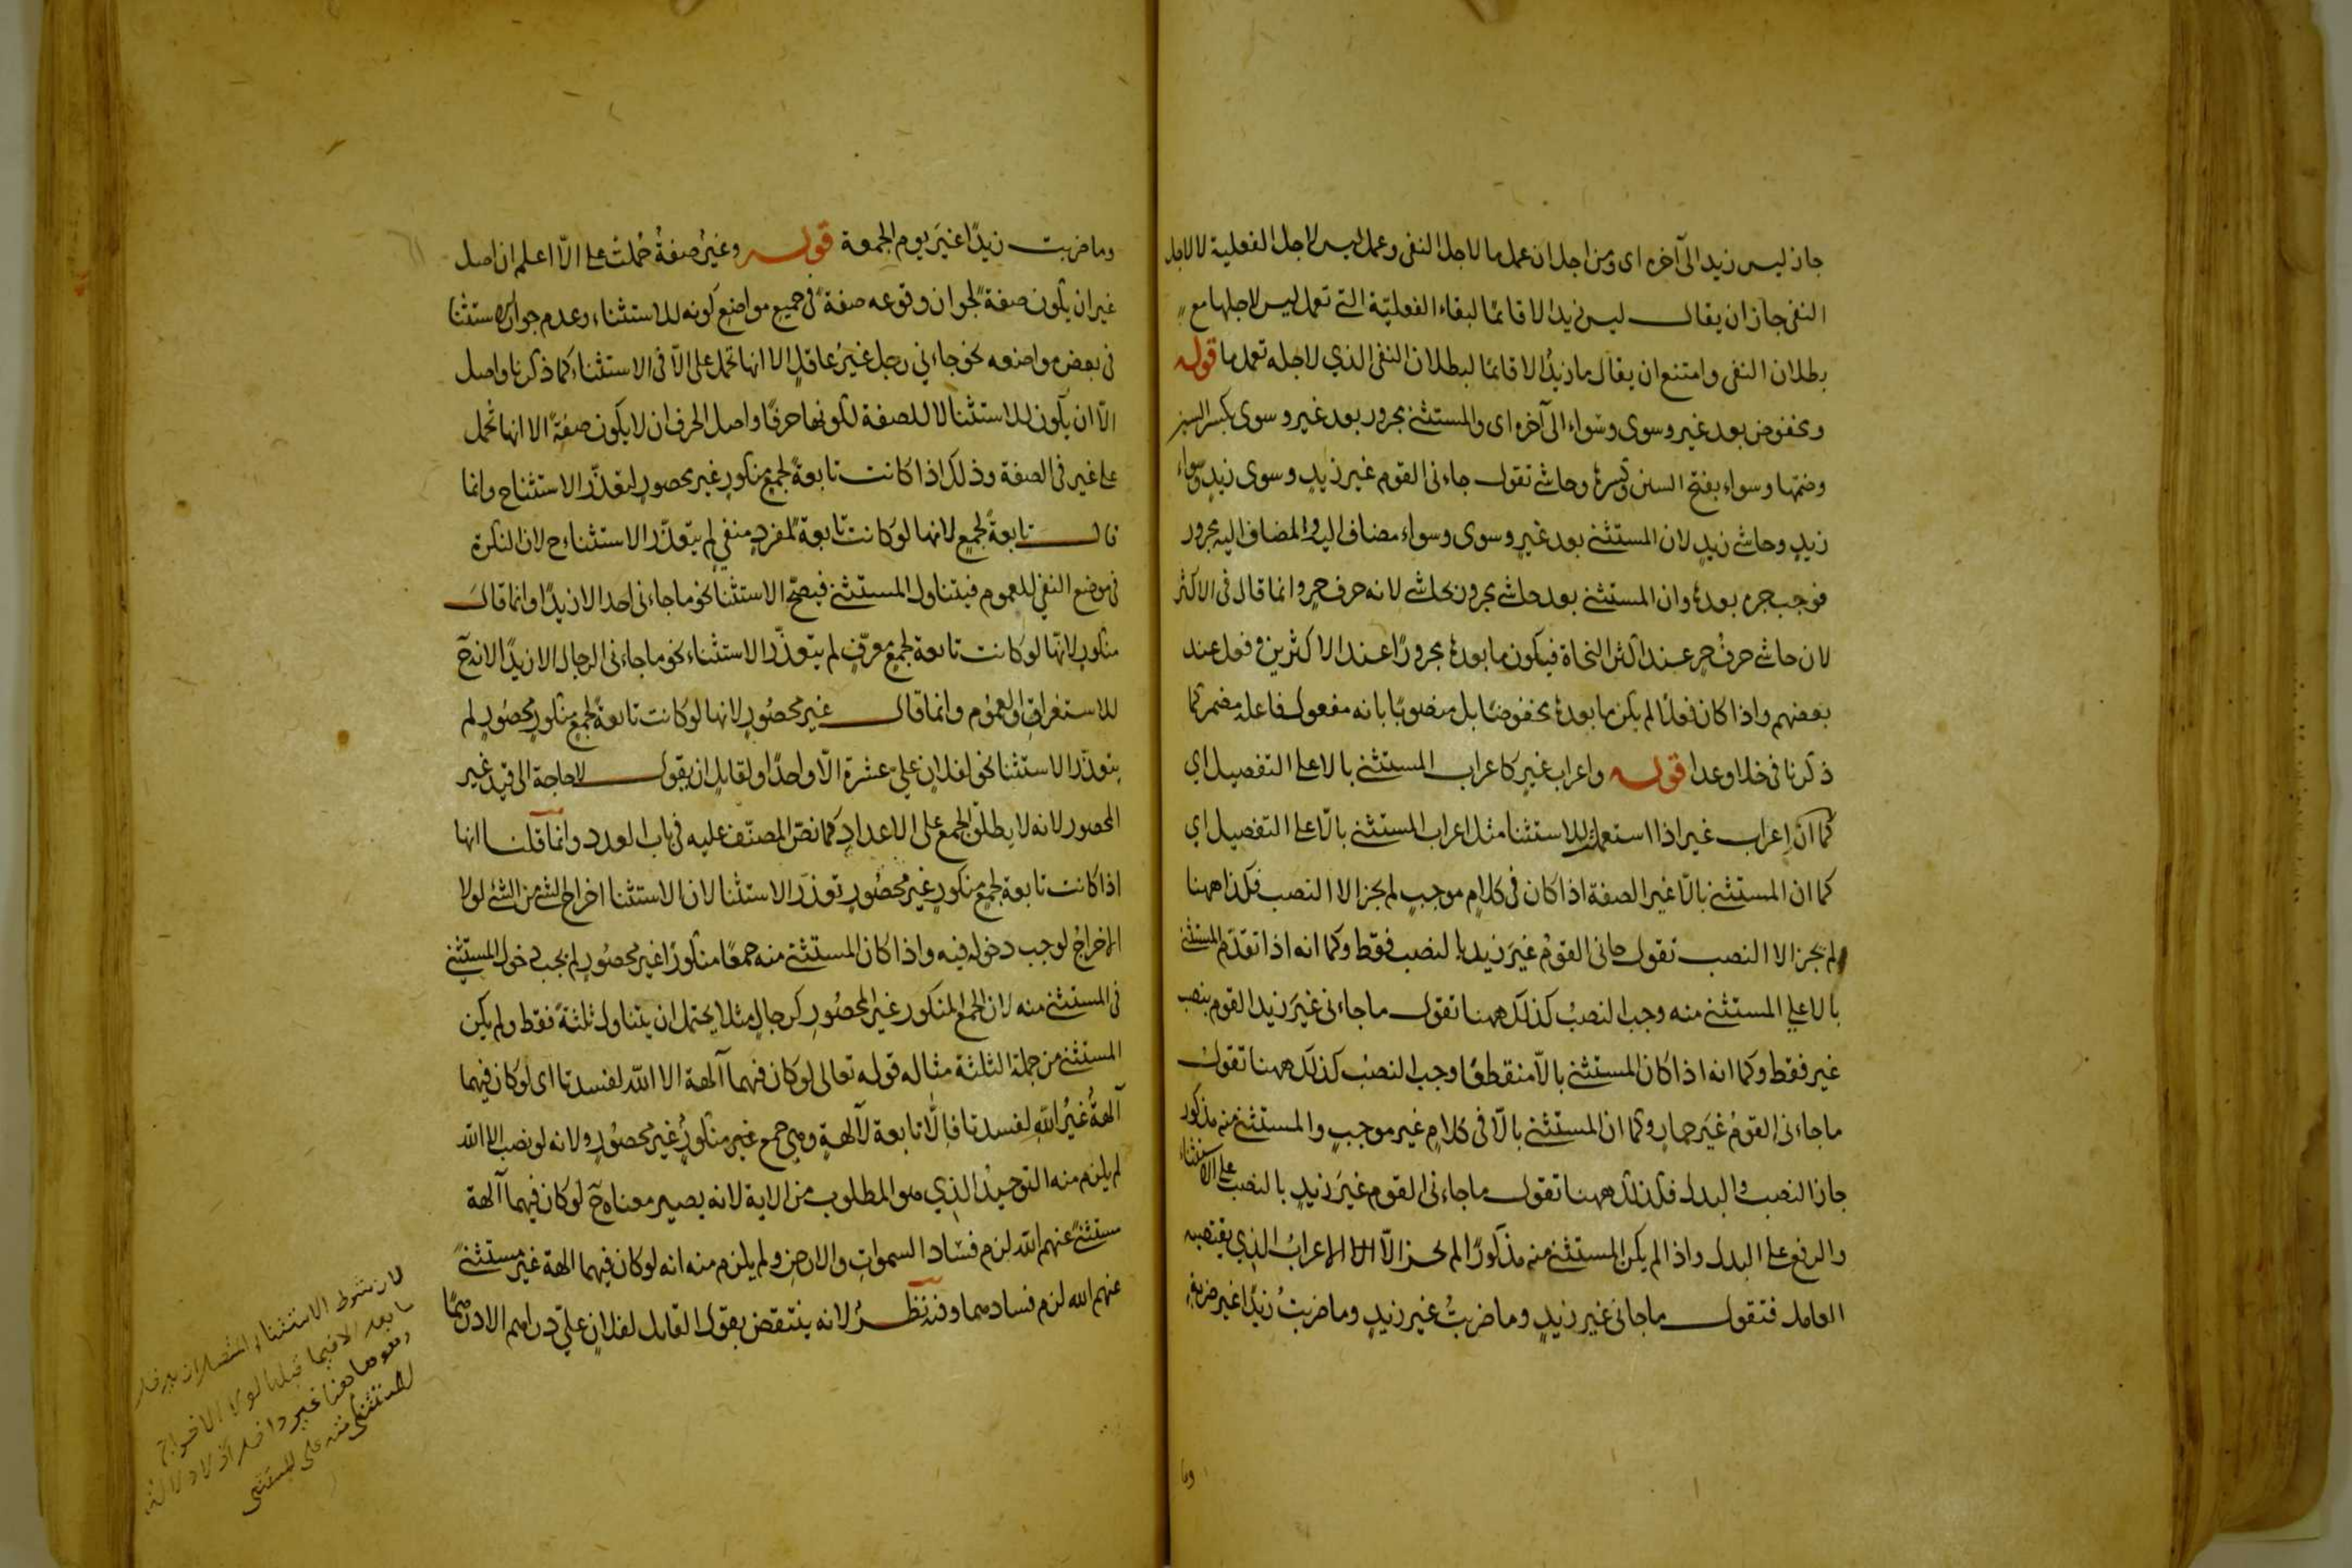 جاز ليس زيد الى آخره اى ومن اجل ان عمل ما لاجل النفى وعمل ليس لاجل الفعلية لا لاجل
النفى جاز ان يقال ليس زيد الا قائمًا لبقاء الفعليّة التى تعمل ليس لاجلها مع
بطلان النفى وامتنع ان يقال ما زيدٌ الا قائمًا لبطلان النفى الذي لاجله تعمل ما قوله
ومخفوض بعد غير وسوى وسَواء الى آخره اى والمستثنى مجرور بعد غير وسوى بكسر السين
وضمّها وسواء بفتح السين وكسرها وحاشى تقول جاءنى القوم غير زيدٍ وسوى زيدٍ وسواء
زيدٍ وحاشى زيدٍ لان المستثنى بعد غيرٍ وسوى وسواء مضاف اليه والمضاف اليه مجرور
فوجب جره بعدها وان المستثنى بعد حاشى مجرور بحاشى لانه حرف جرٍ وانما قال فى الاكثر
لان حاشى حرفُ جرٍ عند اكثر النحاة فيكون ما بعدها مجرورًا عند الاكثرين وفعل عند
بعضهم واذا كان فعلًا لم يكن ما بعدها مخفوضًا بل منصوبًا بانه مفعول فاعله مضمر كما
ذكرنا فى خلا وعدا قوله واعراب غيرٍ كاعراب المستثنى بالا على التفصيل اي
كما انّ اِعراب غير اذا استعمل للاستثنا مثل اعراب المستثنى بالّا على التفصيل اي
كما ان المستثنى بالّا غير الصفة اذا كان فى كلامٍ موجبٍ لم يجز الا النصب فكذا ههنا
لم يجز الا النصب تقول جانى القومُ غيرَ زيد بالنصب فقط وكما انه اذا تقدّم المستثنى
بالا على المستثنى منه وجب النصبُ كذلك ههنا تقول ما جاءنى غيرَ زيد القوم بنصب
غير فقط وكما انه اذا كان المستثنى بالاّ منقطعًا وجب النصبُ كذلك ههنا تقول
ما جاءنى القومُ غيرَ حمارٍ وكما ان المستثنى بالّا فى كلامٍ غير موجبٍ والمستثنى منه مذكور
جاز النصب والبدل فكذلك ههنا تقول ما جاءنى القوم غيرَ زيدٍ بالنصب على الاستثناء
والرفع على البدل واذا لم يكن المستثنى منه مذكورًا لم يجز الّا الاعرابُ الذي يقتضيه
العامل فتقول ما جانى غير زيدٍ وما ضربتُ غير زيدٍ وما ضربتُ زيدًا غير
وما
وما ضربت زيدًا غيرَ يوم الجمعة قوله وغيرُ صفةٌ حُملتْ على الّا اعلم ان اصل
غير ان يكون صفةً لجواز وقوعه صفةً فى جميع مواضع كونه للاستثناء وعدم جواز الاستثنا
فى بعض مواضعه نحو جاءني رجل غيرُ عاقلٍ الا انها تحمل على الّا فى الاستثناء كما ذكرنا واصل
الّا ان يكون للاستثنا لا للصفة لكونها حرفًا واصل الحرف ان لا يكون صفةً الا انها تُحمل
على غير فى الصفة وذلك اذا كانت تابعةً لجمع منكورٍ غير محصورٍ لتعذّر الاستثنا ح وانما
قال تابعةً لجمعٍ لانها لو كانت تابعةً لمفردٍ منفيٍ لم يتعذّر الاستثناء ح لان النكرة
فى موضع النفي للعموم فيتناول المستثنى فيصحّ الاستثنا نحو ما جاءنى احد الا زيدًا وانما قال
منكورٍ لانّها لو كانت تابعة لجمعٍ معرّفٍ لم يتعذّر الاستثناء نحو ما جاءنى الرجال الا زيدًا لانه ح
للاستغراق او العموم وانما قال غير محصُورٍ لانها لو كانت تابعةً لجمعٍ منكورٍ محصُورٍ لم
يتعذّر الاستثنا نحو لفلانٍ عليَّ عشرة الّا واحدًا ولقايلٍ ان يقول لا حاجة الى قيد غير
المحصور لانه لا يطلق الجمع على الاعدادِ كما نصّ المصنّف عليه فى باب العدد وانما قلنا انها
اذا كانت تابعة لجمع منكورٍ غير محصُورٍ تعذّر الاستثنا لان الاستثنا اخراج الشئ من الشئ لولا
الاخراجُ لوجب دخوله فيه واذا كان المستثنى منه جمعًا منكورًا غير محصُورٍ لم يجب دخول المستثنى
فى المستثنى منه لان الجمع المنكور غير المحصُورِ كرجالٍ مثلا يحتمل ان يتناول ثلثةً فقط ولم يكن
المستثنى من جملة الثلثة مثاله قوله تعالى لو كان فيهما آلهة الا الله لفسدتا اى لو كان فيهما
آلهةٌ غيرُ اللهِ لفسدتا فاِلّا تابعة لآلهةٍ وهي جمع غير منكورٌ غير محصُورٍ ولانه لو نصب الا الله
لم يلزم منه التوحيدُ الذي هو المطلوب من الاية لانه يصير معناه ح لو كان فيهما آلهة
مستثنًى عنهم الله لزم فسَاد السمواتِ والارضِ ولم يلزم منه انه لو كان فيهما الهة غير مستثنًى
عنهم الله لزم فسادهما وفيه نظرٌ لانه ينتقض بقول القايل لفلانٍ عليَّ دراهم الا درهمًا
لان شرط الاستثناء المتصل ان يدخل
ما بعد الا فيما قبلها لولا الاخراج
وهو هاهنا غير داخل اذ لا دلالة
للمستثنى منه على المستثنى